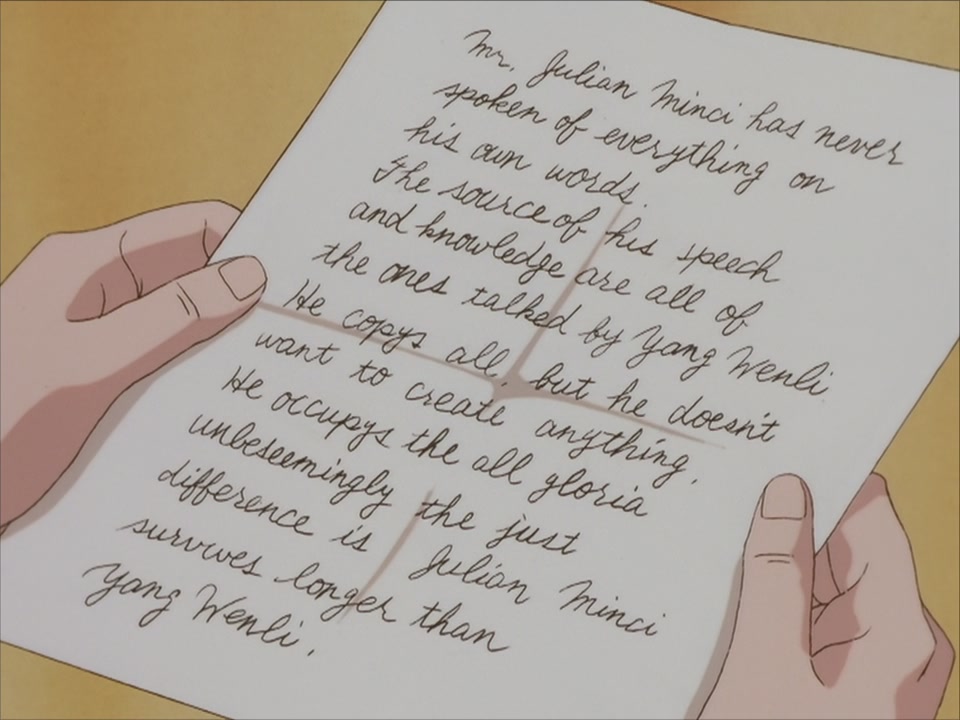 Mr. Julian Minci has never
spoken of everything on
his own words.
The source of his speech
and knowledge are all of
the ones talked by Yang Wenli.
He copys all, but he doesn't
want to create anything.
He occupys the all gloria
unbeseemingly the just
difference is Julian Minci
survives longer than
Yang Wenli.